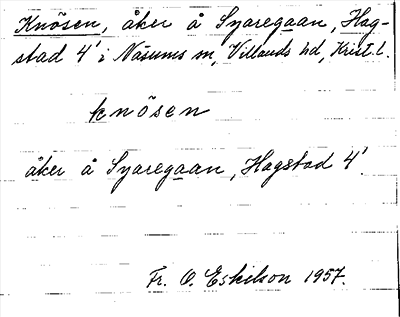 Knösen, åker å Syaregaan, Hag-
stad 4¹ i Näsums sn, Villands hd, Krist. l.
knösen
åker å Syaregaan, Hagstad 4¹.
Fr. O. Eskilson 1957.